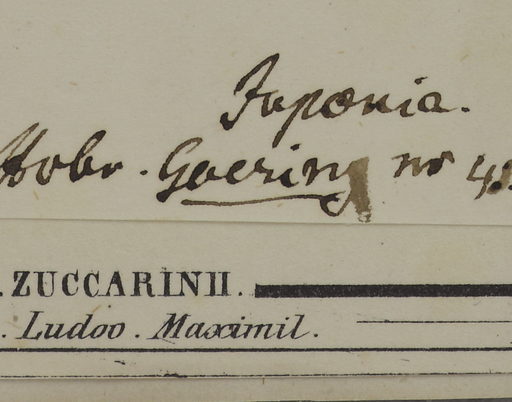 Japonia.
Herbr. Goering nr 43
. ZUCCARINII.
. Ludov. Maximil.